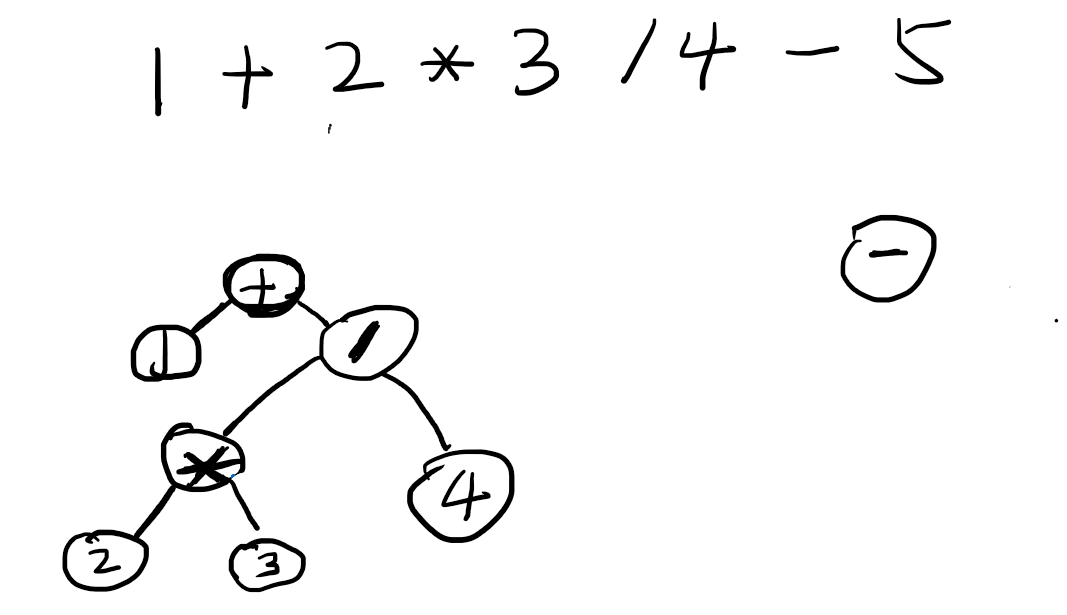 1 + 2 * 3 / 4 - 5
-
+
1
/
*
4
2
3